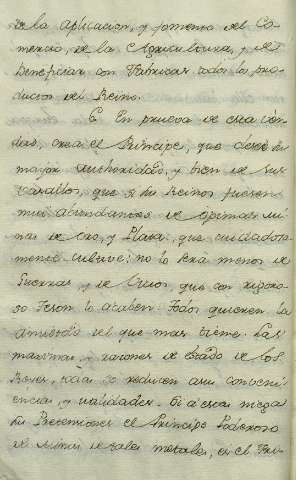 de la Aplicacion, y fomento del Co-
mercio, de la Agricultura, y del
beneficiar con Fabricas todos los pro-
ductos del Reino.
6. En prueva de esta ver-
dad, crea el Principe, que desea su
maior authoridad, y bien de sus
vasallos, que si su Reino fuesen
mui abundantes de opimas mi-
nas de oro, y Plata, que cuidadosa-
mente cultive; no lo será menos de
Guerras, y de Visos, que con rigoro-
so teson lo acaben. Todos quieren la
amistad del que mas tiene. Las
maximas, y razones de Estado de los
Reyes, solo se reducen a su conveni-
encia, y utilidades. Si a essas niega
sus Pretensiones el Principe Poderoso
de minas de tales metales, es el